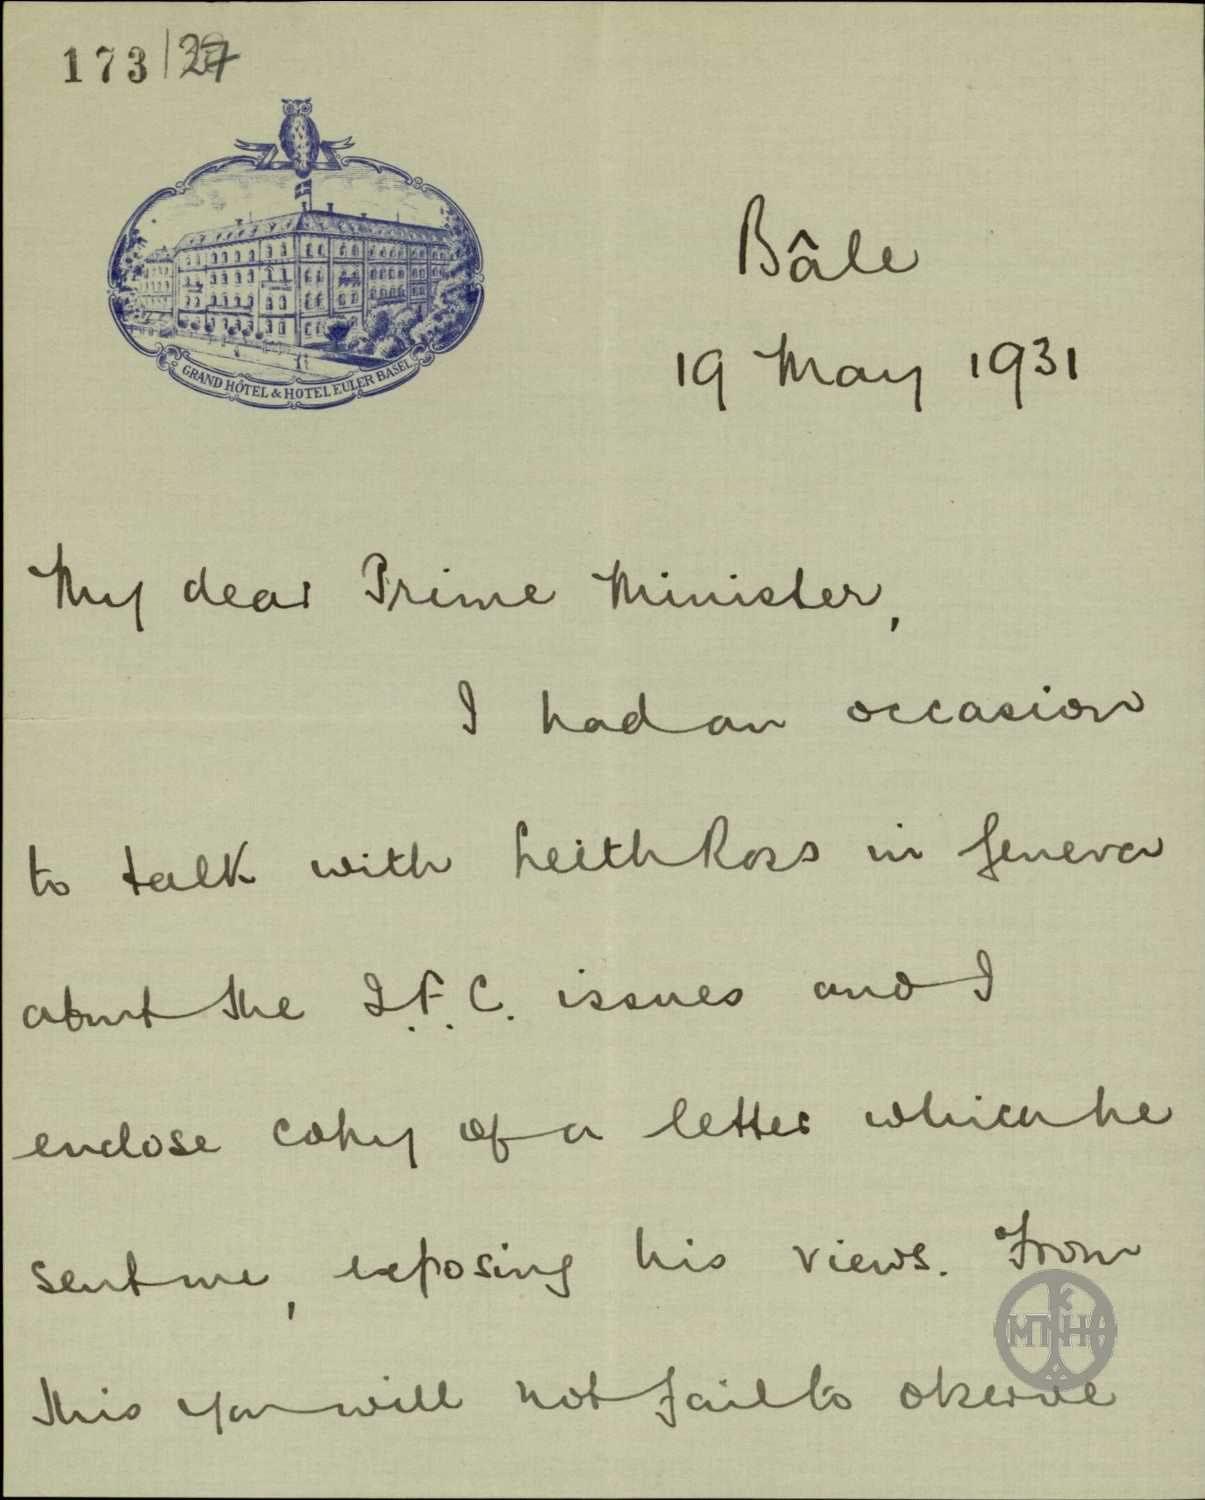 173/27
GRAND HÔTEL & HOTEL EULER BASEL
Bâle
19 May 1931
My dear Prime Minister,
I had an occasion
to talk with Leith Ross in Geneva
about the I.F.C. issues and I
enclose copy of a letter which he
sent me, exposing his views. From
this you will not fail to observe